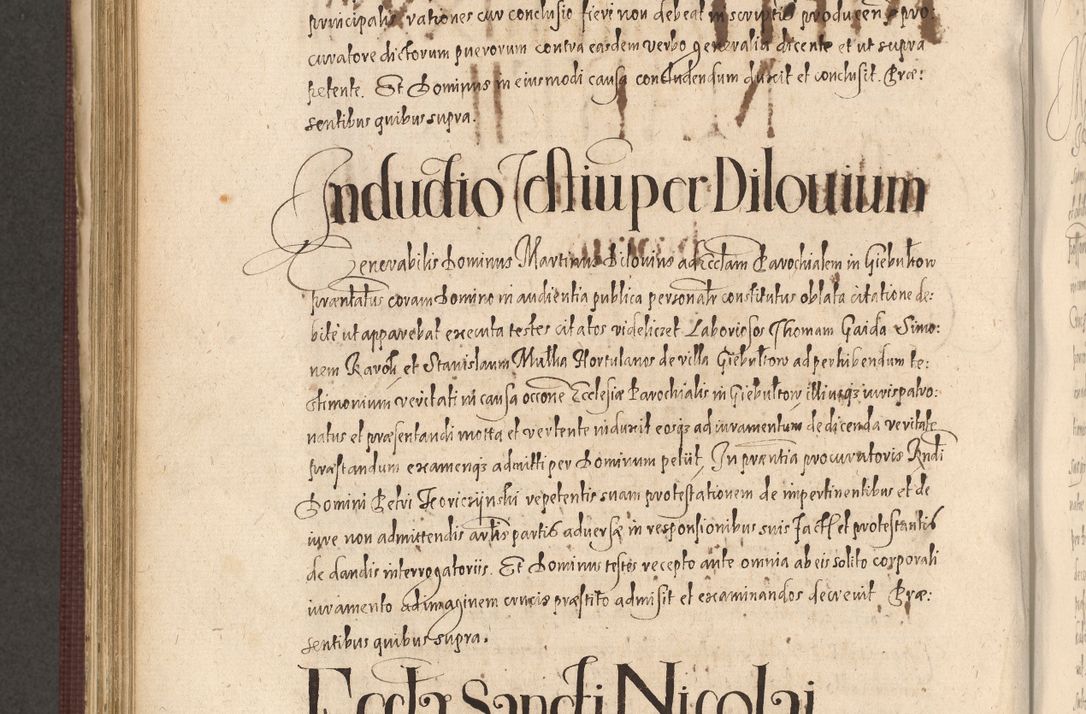 principalis rationes cur conclusio fieri non debeat in scriptis producen. pro:
curatore dictorum puerorum contra easdem verbo generalia dicente et ut supra
petente. Et Dominus in eiusmodi causa concludendum duxit et conclusit. Præ:
sentibus quibus supra.
Inductio Testiu per Dilouium
Venerabilis Dominus Martinus Dilouius ad Ecclam Parochialem in Giebułtow
præntatus coram Domino in audientia publica personalr constitutus oblata citatione de:
bite ut apparebat executa testes citatos videliczet Laboriosos Thomam Gaida Simo:
nem Karoli et Stanislaum Mułka Hortulanos de villa Giebułtow ad perhibendum te:
stimonium veritati in causa occone Ecclesiæ Parochialis in Giebułtow illiusqz iurispatro:
natus et præsentandi motta et vertente induxit eosqz ad iuramentum de dicenda veritate
præstandum examenqz admitti per Dominum petiit. In præntia procuratoris Rndi
Domini Petri repetentis suam protestationem de impertinentibus et de
iure non admittendis artlis partis adversæ in responsionibus suis fact et protestantis
de dandis interrogatoriis. Et Dominus testes recepto ante omnia ab eis solito corporali
iuramento ad imaginem crucis præstito admisit et examinandos decrevit. Præ:
sentibus quibus supra.
Eccla Sancti Nicolai